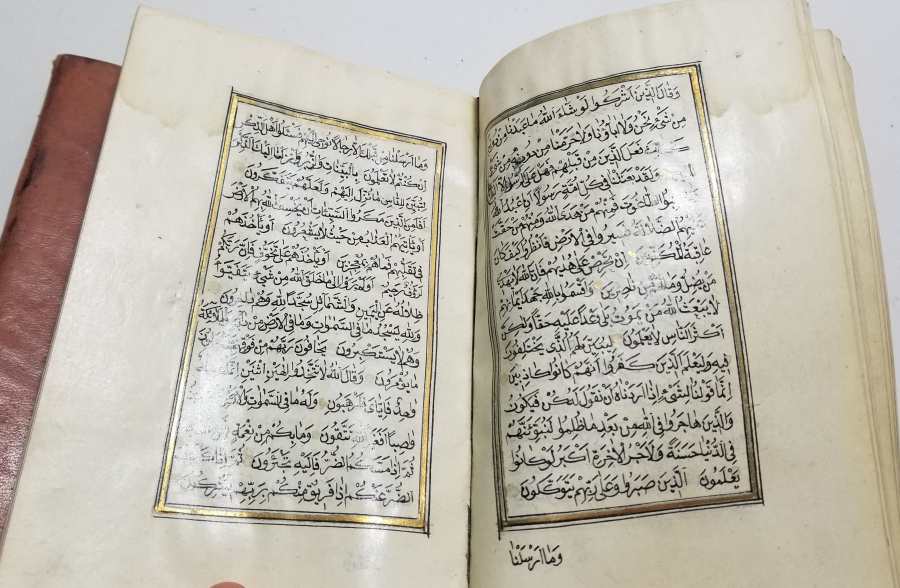 وَقَالَ الَّذِينَ اَشْرَكُوا لَوْ شَاءَ اللهُ مَا عَبَدْنَا مِنْ دُونِهِ
مِنْ شَيْءٍ نَحْنُ وَلَا اٰبَاؤُنَا وَلَا حَرَّمْنَا مِنْ دُونِهِ مِنْ
فَعَلَ الَّذِينَ مِنْ قَبْلِهِمْ فَهَلْ عَلَى الرُّسُلِ اِلَّا
وَلَقَدْ بَعَثْنَا فِي كُلِّ اُمَّةٍ رَسُولًا اَنِ اعْبُدُوا اللهَ
الطَّاغُوتَ فَمِنْهُمْ مَنْ هَدَى اللهُ وَمِنْهُمْ مَنْ حَقَّتْ
الضَّلَالَةُ فَسِيرُوا فِي الْاَرْضِ فَانْظُرُوا كَيْفَ كَانَ
عَاقِبَةُ الْمُكَذِّبِينَ اِنْ تَحْرِصْ عَلَى هُدٰيهُمْ فَاِنَّ اللهَ لَا يَهْدِي
مَنْ يُضِلُّ وَمَا لَهُمْ مِنْ نَاصِرِينَ وَاَقْسَمُوا بِاللهِ جَهْدَ اَيْمَانِهِمْ
لَا يَبْعَثُ اللهُ مَنْ يَمُوتُ بَلَى وَعْدًا عَلَيْهِ حَقًّا وَلٰكِنَّ
اَكْثَرَ النَّاسِ لَا يَعْلَمُونَ لِيُبَيِّنَ لَهُمُ الَّذِي يَخْتَلِفُونَ
فِيهِ وَلِيَعْلَمَ الَّذِينَ كَفَرُوا اَنَّهُمْ كَانُوا كَاذِبِينَ
اِنَّمَا قَوْلُنَا لِشَيْءٍ اِذَا اَرَدْنَاهُ اَنْ نَقُولَ لَهُ كُنْ فَيَكُونُ
وَالَّذِينَ هَاجَرُوا فِي اللهِ مِنْ بَعْدِ مَا ظُلِمُوا لَنُبَوِّئَنَّهُمْ
فِي الدُّنْيَا حَسَنَةً وَلَاَجْرُ الْاٰخِرَةِ اَكْبَرُ لَوْ كَانُوا
يَعْلَمُونَ الَّذِينَ صَبَرُوا وَعَلَى رَبِّهِمْ يَتَوَكَّلُونَ
وَمَا اَرْسَلْنَا
وَمَا اَرْسَلْنَا مِنْ قَبْلِكَ اِلَّا رِجَالًا نُوحِي اِلَيْهِمْ فَسْئَلُوا اَهْلَ الذِّكْرِ
اِنْ كُنْتُمْ لَا تَعْلَمُونَ بِالْبَيِّنَاتِ وَالزُّبُرِ وَاَنْزَلْنَا اِلَيْكَ الذِّكْرَ
لِتُبَيِّنَ لِلنَّاسِ مَا نُزِّلَ اِلَيْهِمْ وَلَعَلَّهُمْ يَتَفَكَّرُونَ
اَفَاَمِنَ الَّذِينَ مَكَرُوا السَّيِّئَاتِ اَنْ يَخْسِفَ اللهُ بِهِمُ الْاَرْضَ
اَوْ يَأْتِيَهُمُ الْعَذَابُ مِنْ حَيْثُ لَا يَشْعُرُونَ اَوْ يَأْخُذَهُمْ
فِي تَقَلُّبِهِمْ فَمَا هُمْ بِمُعْجِزِينَ اَوْ يَأْخُذَهُمْ عَلَى تَخَوُّفٍ فَاِنَّ رَبَّكُمْ
لَرَؤُفٌ رَحِيمٌ اَوَلَمْ يَرَوْا اِلَى مَا خَلَقَ اللهُ مِنْ شَيْءٍ يَتَفَيَّؤُا
ظِلَالُهُ عَنِ الْيَمِينِ وَالشَّمَائِلِ سُجَّدًا لِلّٰهِ وَهُمْ دَاخِرُونَ
وَلِلّٰهِ يَسْجُدُ مَا فِي السَّمٰوَاتِ وَمَا فِي الْاَرْضِ مِنْ دَابَّةٍ وَالْمَلٰئِكَةُ
وَهُمْ لَا يَسْتَكْبِرُونَ يَخَافُونَ رَبَّهُمْ مِنْ فَوْقِهِمْ
مَا يُؤْمَرُونَ وَقَالَ اللهُ لَا تَتَّخِذُوا اِلٰهَيْنِ اثْنَيْنِ
وَاحِدٌ فَاِيَّايَ فَارْهَبُونِ وَلَهُ مَا فِي السَّمٰوَاتِ
وَاصِبًا اَفَغَيْرَ اللهِ تَتَّقُونَ وَمَا بِكُمْ مِنْ نِعْمَةٍ
ثُمَّ اِذَا مَسَّكُمُ الضُّرُّ فَاِلَيْهِ تَجْئَرُونَ ثُمَّ اِذَا
الضُّرَّ عَنْكُمْ اِذَا فَرِيقٌ مِنْكُمْ بِرَبِّهِمْ يُشْرِكُونَ